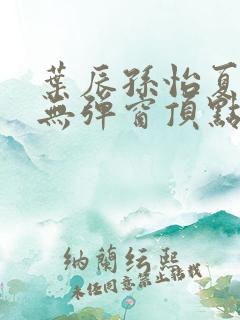 葉辰孫怡夏
無彈窗頂點
納蘭紜熙
未經同意禁止轉載